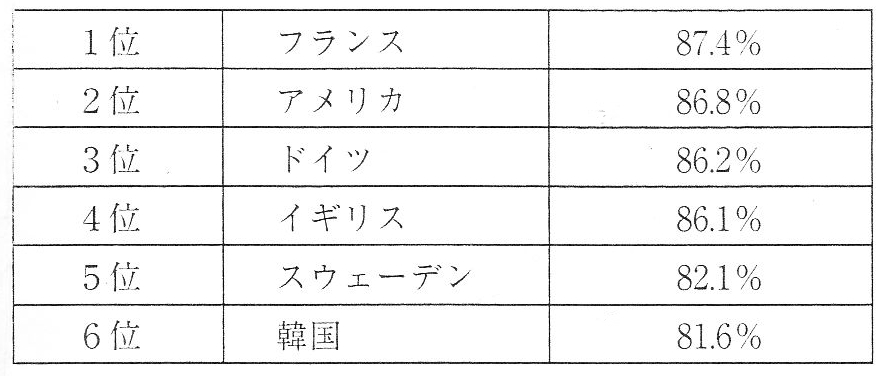 1位 フランス 87.4%
2位 アメリカ 86.8%
3位 ドイツ 86.2%
4位 イギリス 86.1%
5位 スウェーデン 82.1%
6位 韓国 81.6%